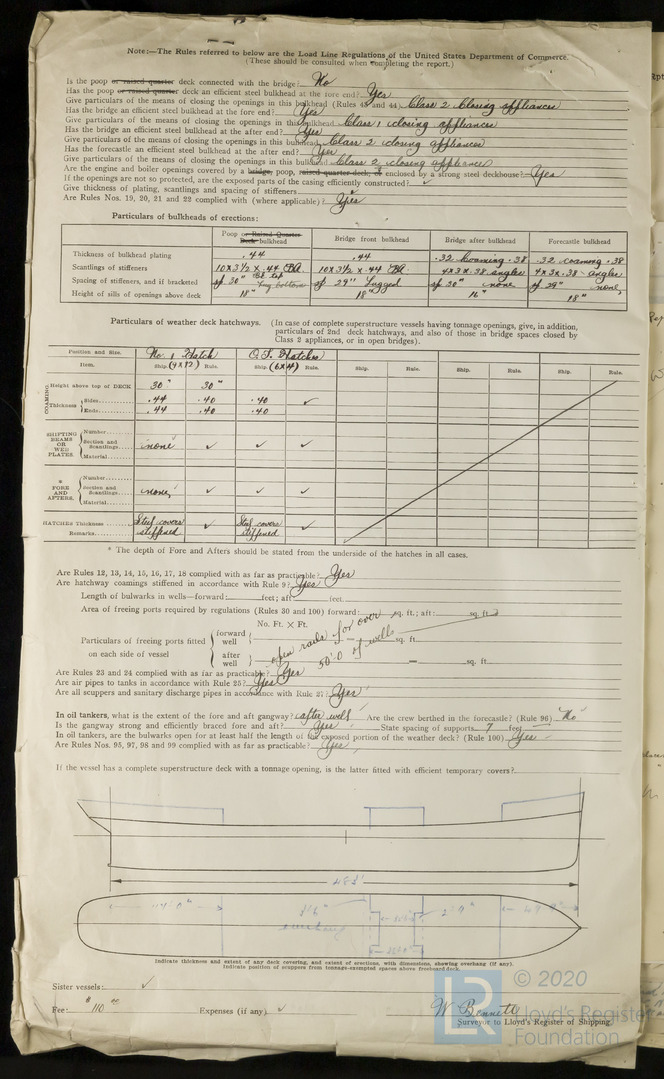 Note:—The Rules referred to below are the Load Line Regulations of the United States Department of Commerce.
(These should be consulted when completing the report.)
Is the poop or raised quarter deck connected with the bridge? No
Has the poop or raised quarter deck an efficient steel bulkhead at the fore end? Yes
Give particulars of the means of closing the openings in this bulkhead (Rules 43 and 44) Class 2 closing appliances
Has the bridge an efficient steel bulkhead at the fore end? Yes
Give particulars of the means of closing the openings in this bulkhead Class 1 closing appliances
Has the bridge an efficient steel bulkhead at the after end? Yes
Give particulars of the means of closing the openings in this bulkhead Class 2 closing appliances
Has the forecastle an efficient steel bulkhead at the after end? Yes
Give particulars of the means of closing the openings in this bulkhead Class 2 closing appliances
Are the engine and boiler openings covered by a bridge, poop, raised quarter deck, or enclosed by a strong steel deckhouse? Yes
If the openings are not so protected, are the exposed parts of the casing efficiently constructed? ✓
Give thickness of plating, scantlings and spacing of stiffeners
Are Rules Nos. 19, 20, 21 and 22 complied with (where applicable)? Yes
Particulars of bulkheads of erections:
Poop or Raised Quarter Deck bulkhead Bridge front bulkhead Bridge after bulkhead Forecastle bulkhead
Thickness of bulkhead plating .44 .44 .32 coaming .38 .32 coaming .38
Scantlings of stiffeners 10x3½ x .44 BA 10x3½ x .44 BA 4x3x.38 angles 4x3x.38 angles
Spacing of stiffeners, and if bracketed sp 30" sp 29" Lugged sp 30" none sp 29" none
Height of sills of openings above deck 18" 18" 16" 18"
Particulars of weather deck hatchways. (In case of complete superstructure vessels having tonnage openings, give, in addition,
particulars of 2nd deck hatchways, and also of those in bridge spaces closed by
Class 2 appliances, or in open bridges).
Position and Size. No. 1 Hatch O.T. Hatches
Item. Ship. (9x12) Rule. Ship. (6x4) Rule. Ship. Rule. Ship. Rule. Ship. Rule.
COAMING Height above top of DECK 30" 30"
Thickness Sides .44 .40 .40 ✓
Ends .44 .40 .40
SHIFTING BEAMS OR WEB PLATES Number
Section and Scantlings none ✓ ✓ ✓
Material
* FORE AND AFTERS. Number
Section and Scantlings none ✓ ✓ ✓
Material
HATCHES Thickness Steel covers ✓ Steel covers ✓
Remarks stiffened stiffened
* The depth of Fore and Afters should be stated from the underside of the hatches in all cases.
Are Rules 12, 13, 14, 15, 16, 17, 18 complied with as far as practicable? Yes
Are hatchway coamings stiffened in accordance with Rule 9? Yes
Length of bulwarks in wells—forward: feet; aft feet
Area of freeing ports required by regulations (Rules 30 and 100) forward: sq. ft.; aft: sq. ft
No. Ft. X Ft.
Particulars of freeing ports fitted on each side of vessel forward well
after well sq. ft.
open rails for over 50'0 of wells
Are Rules 23 and 24 complied with as far as practicable? Yes
Are air pipes to tanks in accordance with Rule 25? Yes
Are all scuppers and sanitary discharge pipes in accordance with Rule 27? Yes
In oil tankers, what is the extent of the fore and aft gangway? after well Are the crew berthed in the forecastle? (Rule 96) No
Is the gangway strong and efficiently braced fore and aft? Yes State spacing of supports 7 feet
In oil tankers, are the bulwarks open for at least half the length of the exposed portion of the weather deck? (Rule 100) Yes
Are Rules Nos. 95, 97, 98 and 99 complied with as far as practicable? Yes
If the vessel has a complete superstructure deck with a tonnage opening, is the latter fitted with efficient temporary covers?
Indicate thickness and extent of any deck covering, and extent of erections, with dimensions, showing overhang (if any).
Indicate position of scuppers from tonnage-exempted spaces above freeboard deck.
Sister vessels: ✓
Fee: $ 110 00 Expenses (if any) ✓ W Bennett
Surveyor to Lloyd's Register of Shipping
LR © 2020
Lloyd's Register
Foundation